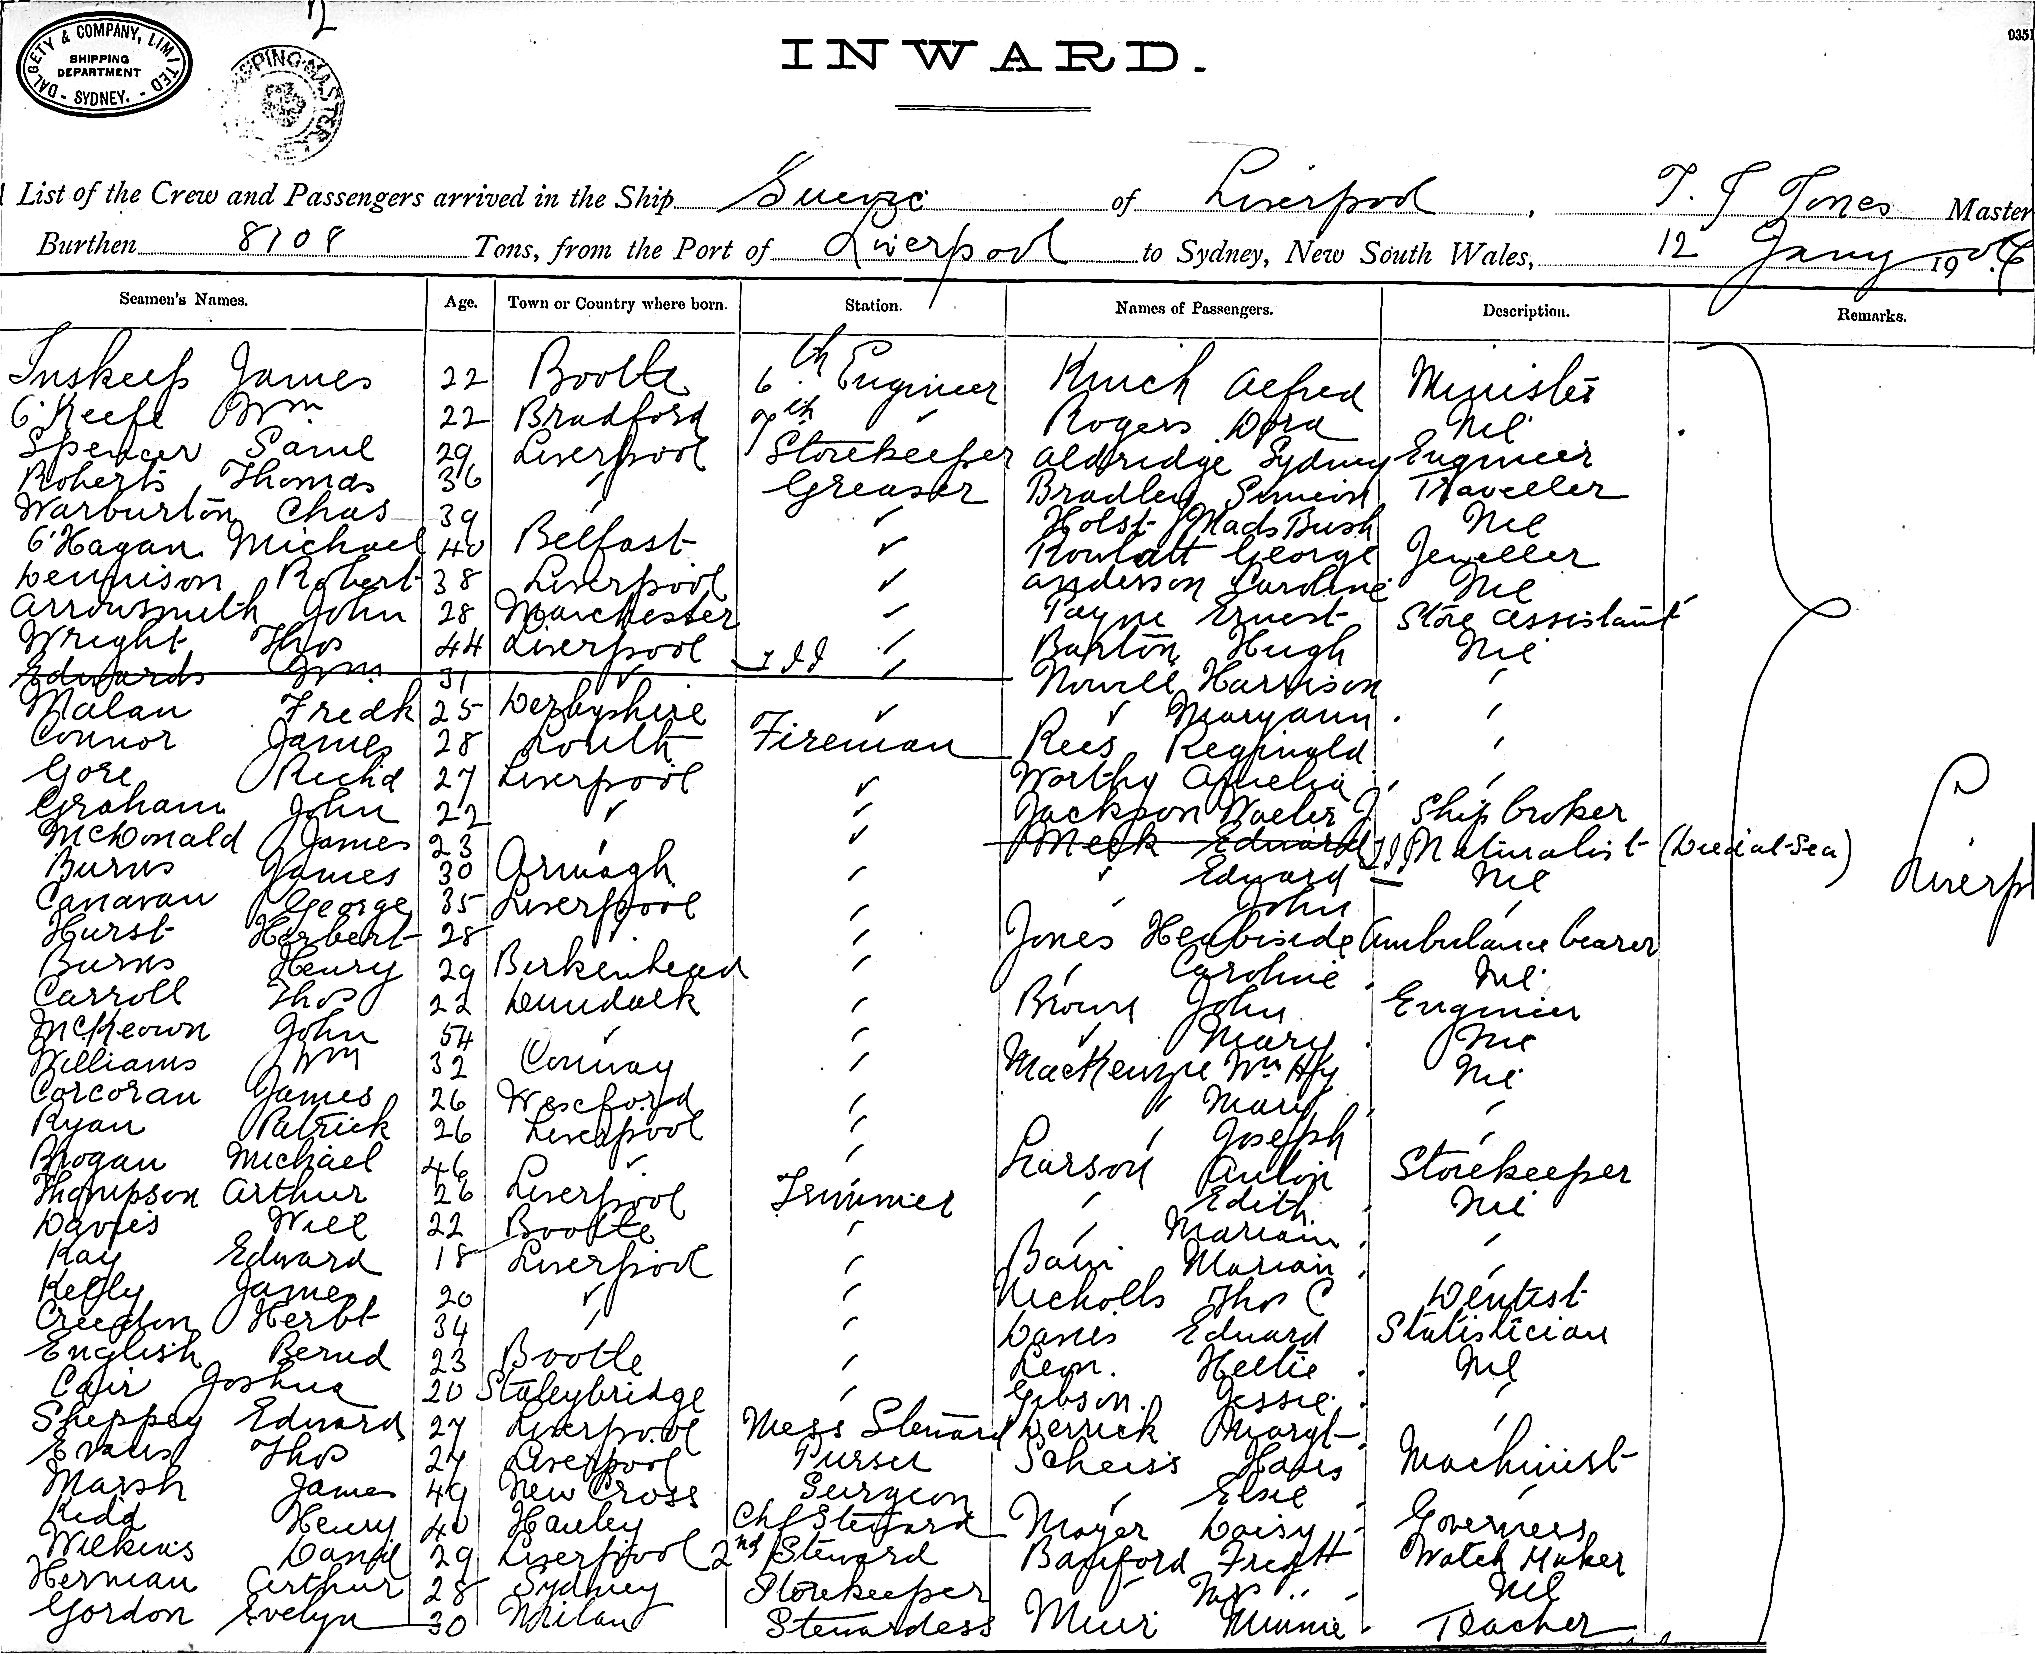 12
DALGETY & COMPANY, LIMITED
SHIPPING
DEPARTMENT
- SYDNEY. -
SHIPPING MASTER
INWARD.
0351
List of the Crew and Passengers arrived in the Ship Suevic of Liverpool, T. J Jones Master
Burthen 8108 Tons, from the Port of Liverpool to Sydney, New South Wales, 12 Jany 190
Seamen's Names. Age. Town or Country where born. Station. Names of Passengers. Description. Remarks.
Inskeep James 22 Bootle 6th Engineer Kinch Alfred Minister
O'Keefe Wm 22 Bradford 7th " Rogers Dora Nil
Spencer Saml 29 Liverpool Storekeeper Aldridge Sydney Engineer
Roberts Thomas 36 " Greaser Bradley Simeon Traveller
Warburton Chas 39 " " Holst Mads Bush Nil
O'Hagan Michael 40 Belfast " Rowlatt George Jeweller
Dennison Robert 38 Liverpool " Anderson Caroline Nil
Arrowsmith John 28 Manchester " Payne Ernest Store Assistant
Wright Thos 44 Liverpool " Barton Hugh Nil
Edwards Wm 31 " " Nowell Harrison "
Malan Fredk 25 Derbyshire " " Maryann "
Connor James 28 Louth Fireman Rees Reginald "
Gore Richd 27 Liverpool " Worthy Amelia "
Graham John 22 " " Jackson Walter J Ship broker
McDonald James 23 " " Meek Edward Naturalist (Died at Sea)
Burns James 30 Armagh " " Edward Nil
Canavan George 35 Liverpool " " John "
Hurst Herbert 28 " " Jones Ambulance bearer Liverp
Burns Henry 29 Birkenhead " " Caroline Nil
Carroll Thos 22 Dundalk " Brown John Engineer
McKeown John 54 " " " Mary Nil
Williams Wm 32 Conway " MacKenzie Wm Hy Nil
Corcoran James 26 Wexford " " Mary "
Ryan Patrick 26 Liverpool " " Joseph "
Brogan Michael 46 " " Larson Anton Storekeeper
Thompson Arthur 26 Liverpool Trimmer " Edith Nil
Davies Will 22 Bootle " " Mariain "
Kay Edward 18 Liverpool " Bain Marian "
Kelly James 20 " " Nicholls Thos C Dentist
Creedon Herbt 34 " " Davies Edward Statistician
English Bernd 23 Bootle " Leon. Nellie Nil
Cair Joshua 20 Staleybridge " Gibson. Jessie "
Sheppey Edward 27 Liverpool Mess Steward Derrick Margt "
Evans Thos 27 Liverpool Purser Scheiss Hans Machinist
Marsh James 49 New Cross Surgeon " Elsie "
Kidd Henry 40 Hanley Chf Steward Mayer Daisy Governess
Wilkins Danl 29 Liverpool 2nd Steward Bamford Fredk H Watch Maker
Herman Arthur 28 Sydney Storekeeper " Mrs " Nil
Gordon Evelyn 30 Milan Stewardess Muir Minnie Teacher